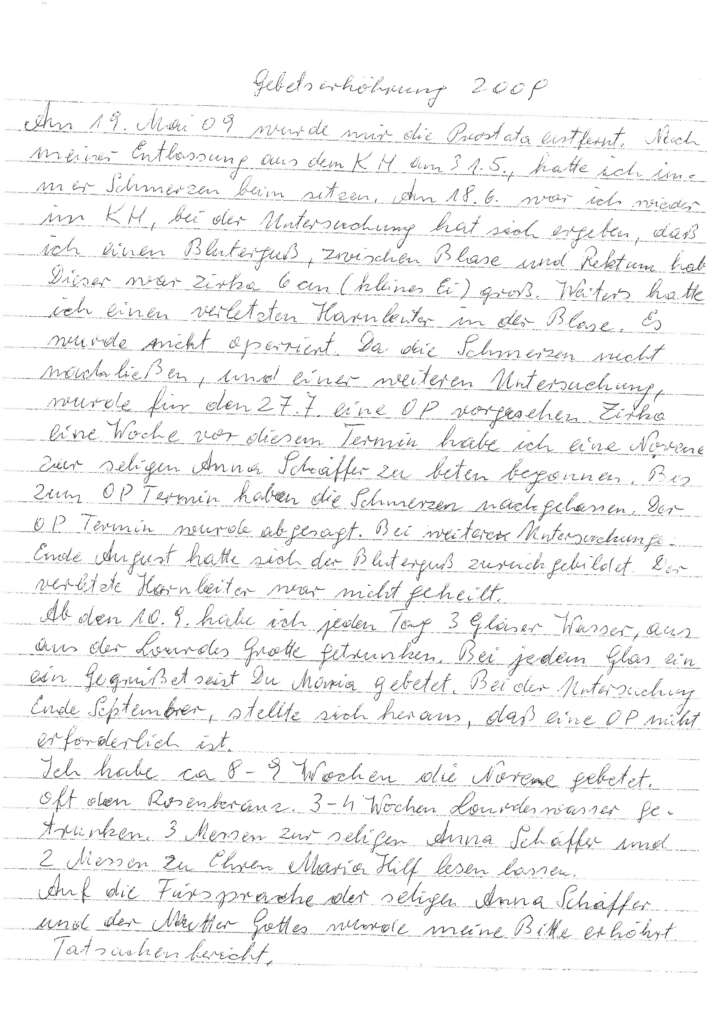 Gebetserhöhrung 2009
Am 19. Mai 09 wurde mir die Prostata entfernt. Nach
meiner Entlassung aus dem KH am 31.5., hatte ich im-
mer Schmerzen beim sitzen. Am 18.6. war ich wieder
im KH, bei der Untersuchung hat sich ergeben, daß
ich einen Bluterguß, zwischen Blase und Rektum hab
Dieser war zirka 6 cm (kleines Ei) groß. Weiters hatte
ich einen verletzten Harnleiter in der Blase. Es
wurde nicht operriert. Da die Schmerzen nicht
nachließen, und einer weiteren Untersuchung,
wurde für den 27.7. eine OP vorgesehen. Zirka
eine Woche vor diesem Termin habe ich eine Novene
zur seligen Anna Schäffer zu beten begonnen. Bis
zum OP Termin haben die Schmerzen nachgelassen. Der
OP Termin wurde abgesagt. Bei weiteren Untersuchunge.
Ende August hatte sich der Bluterguß zurückgebildet. Der
verletzte Harnleiter war nicht geheilt.
Ab den 10.9. habe ich jeden Tag 3 Gläser Wasser, aus
aus der Lourdes Grotte getrunken. Bei jedem Glas ein
ein Gegrüßet seist Du Maria gebetet. Bei der Untersuchung
Ende September, stellte sich heraus, daß eine OP nicht
erforderlich ist.
Ich habe ca 8-9 Wochen die Novene gebetet.
Oft den Rosenkranz. 3-4 Wochen Lourdeswasser ge-
trunken. 3 Messen zur seligen Anna Schäffer und
2 Messen zu Ehren Maria Hilf lesen lassen.
Auf die Fürsprache der seligen Anna Schäffer
und der Mutter Gottes wurde meine Bitte erhöhrt
Tatsachenbericht.